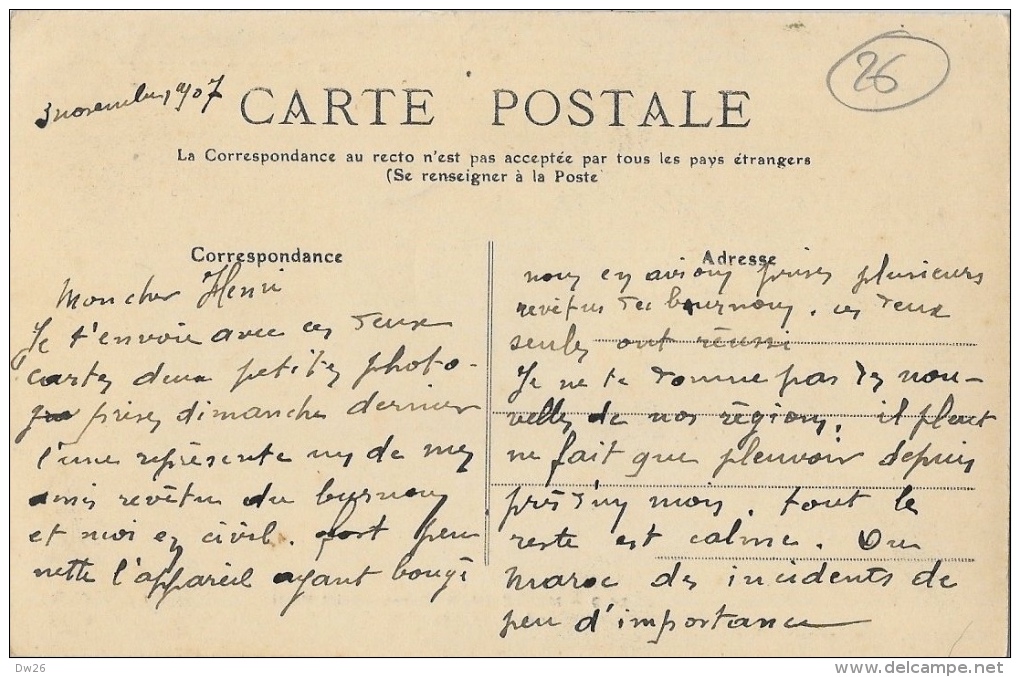 26
3 novembre 1907
CARTE POSTALE
La Correspondance au recto n'est pas acceptée par tous les pays étrangers
(Se renseigner à la Poste
Correspondance
Mon cher Henri
Je t'envoie avec ces deux
cartes deux petites photo-
prises dimanche dernier
l'une représente un de mes
amis revêtu du burnous
et moi en civil. fort peu
nette l'appareil ayant bougé
Adresse
nous en avions prises plusieurs
revêtus des burnous, ces deux
seules ont réussi
Je ne te donne pas des nou-
velles de nos régions, il pleut
ne fait que pleuvoir depuis
près d'un mois. tout le
reste est calme. Au
Maroc des incidents de
peu d'importance
Dw26
www.delcampe.net